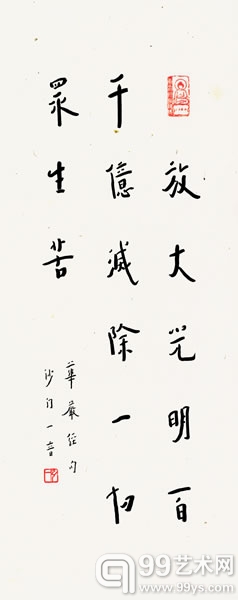 放大光明一百
千億滅除一切
眾生苦
華嚴經句
沙門一音
99艺术网
www.99ys.com